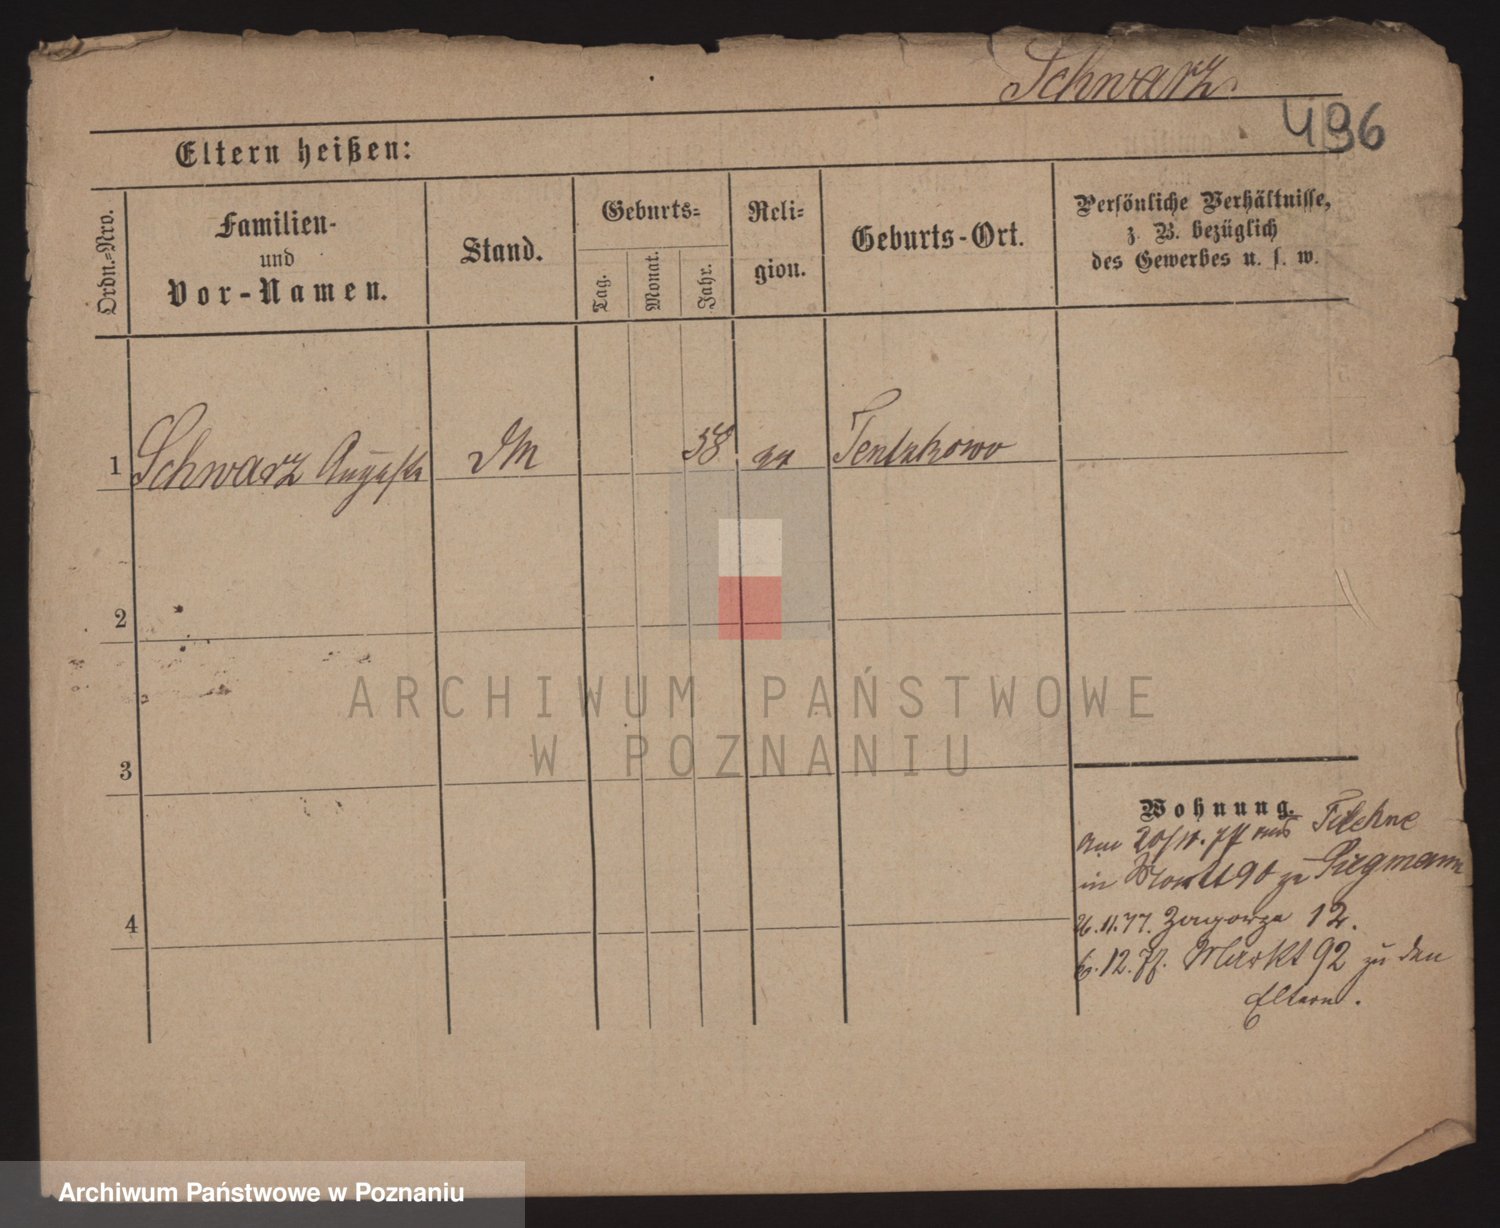 Schwarz
496
Eltern heißen:
Ordn.=Nro.
Familien-
und
Vor-Namen.
Stand.
Geburts=
Tag.
Monat.
Jahr.
Reli=
gion.
Geburts-Ort.
Persönliche Verhältnisse,
z. B. bezüglich
des Gewerbes u. s. w.
1 Schwarz Auguste DM 58 Tentukowo
2
3
4
Wohnung.
am 20/11. 77 aus Filehne
in 90 zu Piegmann
26.11.77. Zagorze 12.
6.12.77. Markt 92 zu den
Eltern.
ARCHIWUM PAŃSTWOWE
W POZNANIU
Archiwum Państwowe w Poznaniu